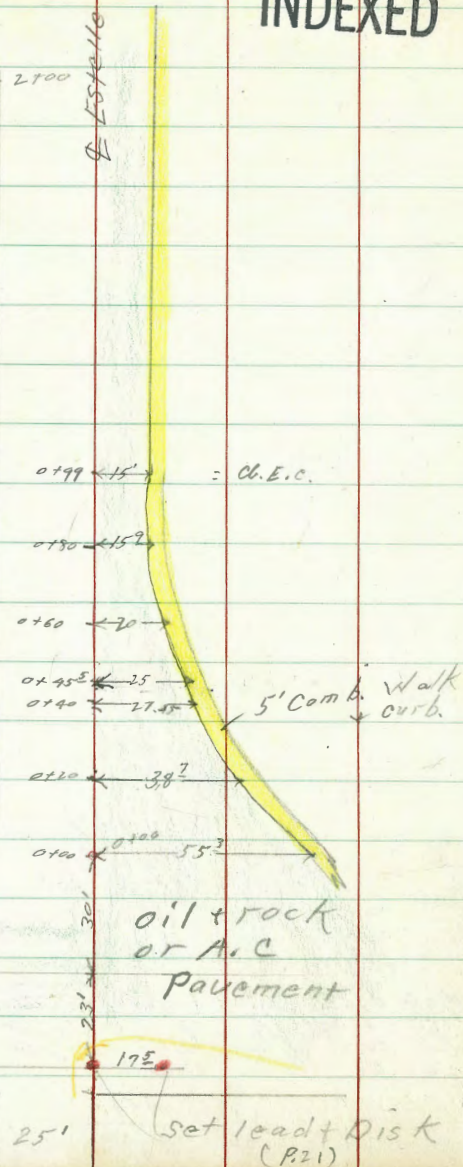 INDEXED
2+00
℄ Estelle
0+99 15' = d.E.c.
0+80 15⁹
0+60 20
0+45⁵ 25
0+40 27.45
5' Comb. Walk
curb.
0+20 38⁷
0+00 0+00 55³
30'
oil + rock
or A.C
Pavement
23'
17⁵
25' set lead + Disk
(P.21)